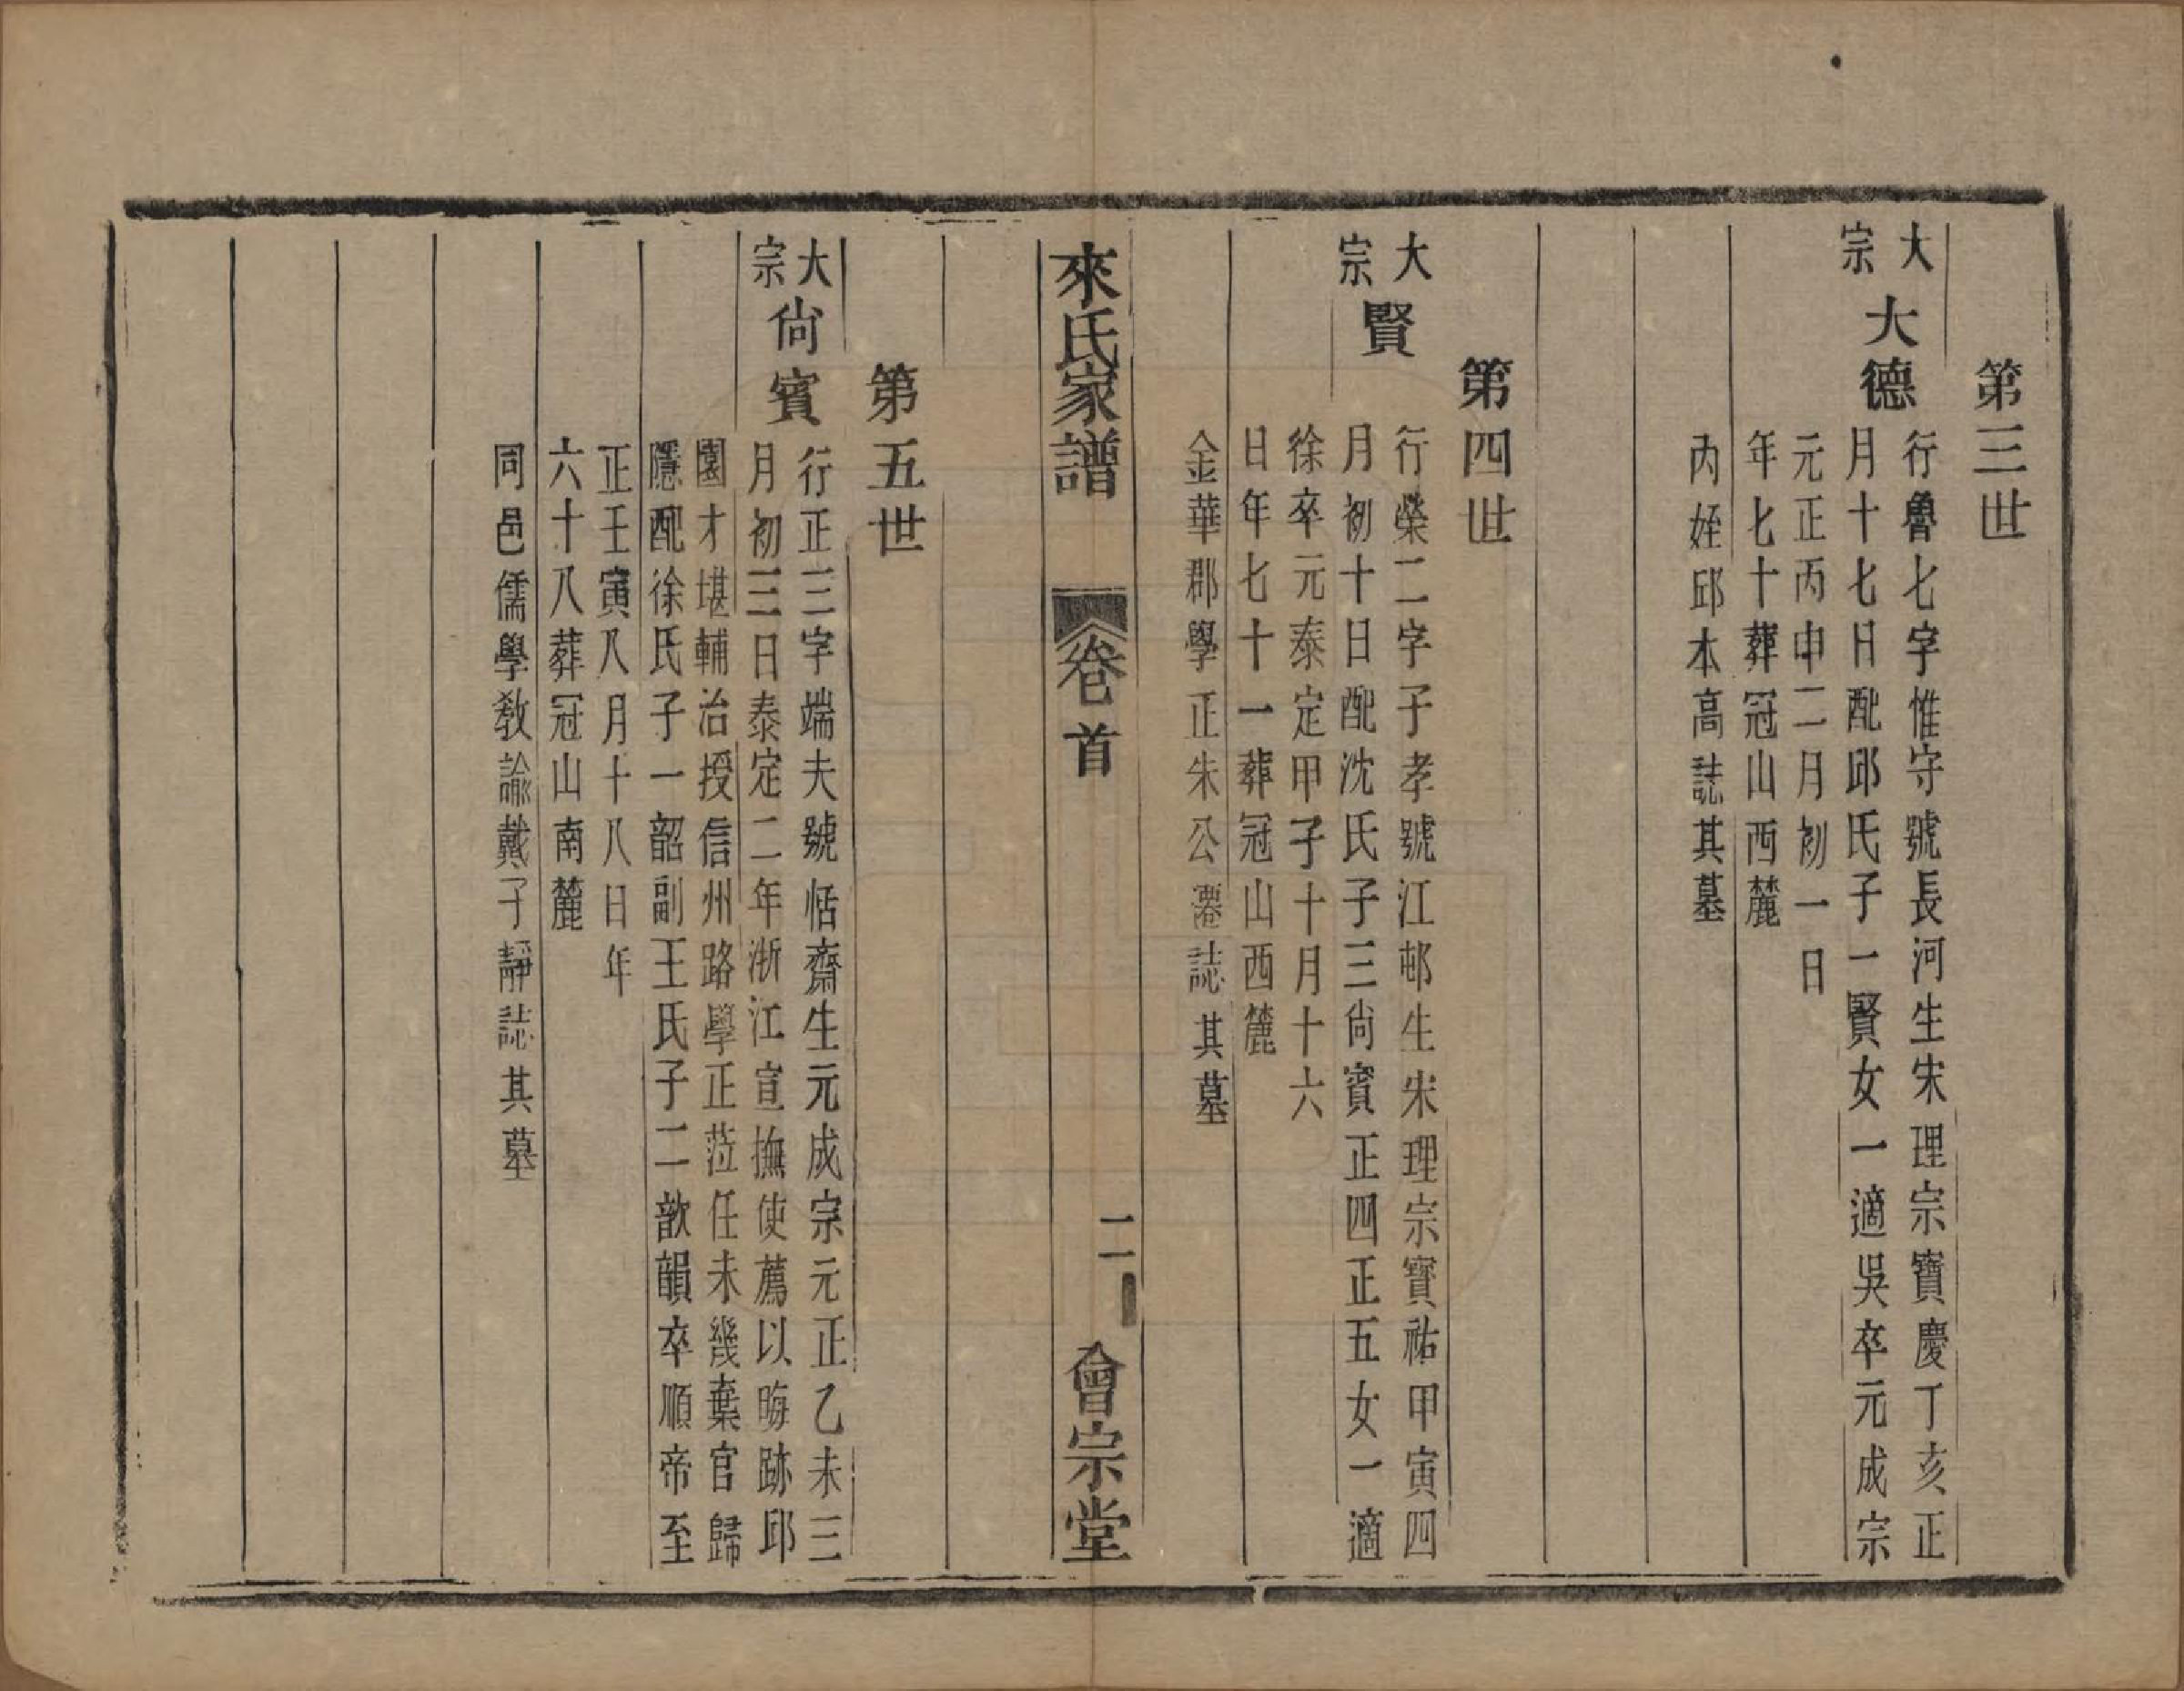 第三世
大宗 大德
行魯七字惟守號長河生宋理宗寶慶丁亥正
月十七日配邱氏子一賢女一適吳卒元成宗
元正丙申二月初一日
年七十葬冠山西麓
內姪邱本高誌其墓
第四世
大宗 賢
行榮二字子孝號江邨生宋理宗寶祐甲寅四
月初十日配沈氏子三尙賓正四正五女一適
徐卒元泰定甲子十月十六
日年七十一葬冠山西麓
金華郡學正朱公遷誌其墓
來氏家譜 卷首 二 會宗堂
第五世
大宗 尙賓
行正三字端夫號恬齋生元成宗元正乙未三
月初三日泰定二年浙江宣撫使薦以晦跡邱
園才堪輔治授信州路學正蒞任未幾棄官歸
隱配徐氏子一韶副王氏子二歆韻卒順帝至
正壬寅八月十八日年
六十八葬冠山南麓
同邑儒學敎諭戴子靜誌其墓